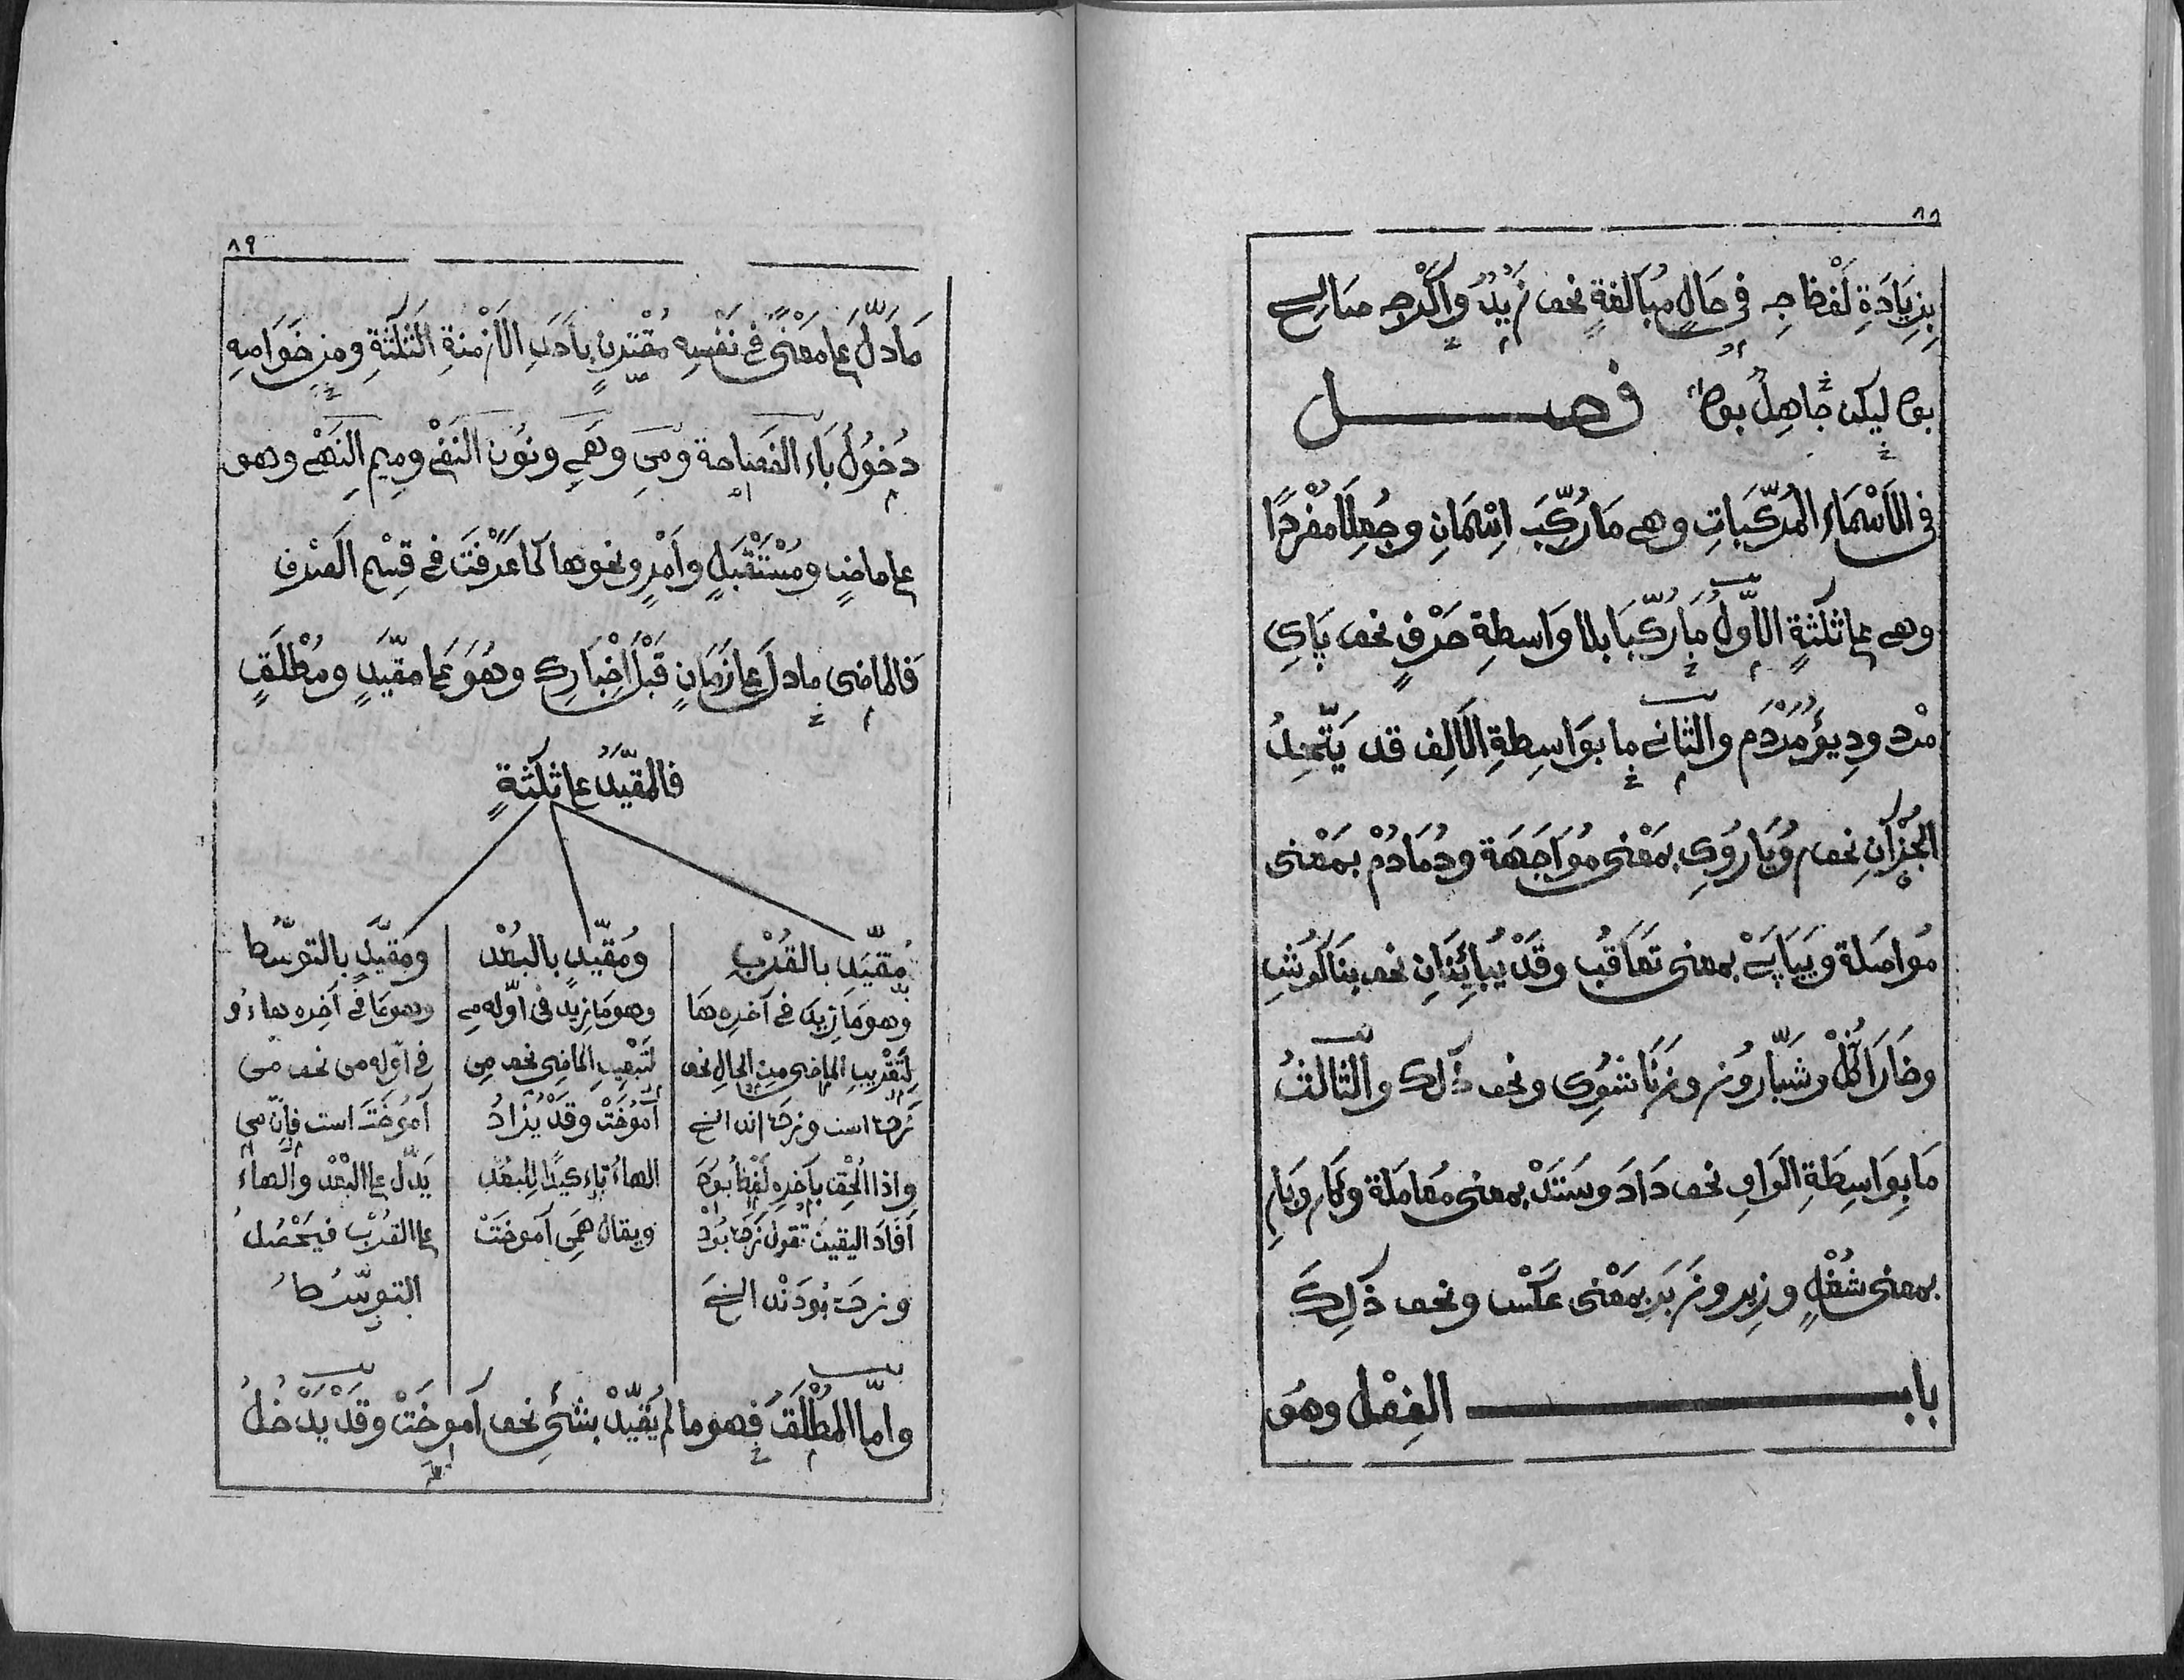 ٨٨
بِزِيَادَةِ لَفْظِ چِه فِي حَالِ مُبَالَغَةٍ نحو زَيْدٌ وَأَكَرْچِه صالح
بود ليكن جَاهِلْ بود فصل
فى الأَسْمَاءِ المُرَكَّبَاتِ وهى مَا رُكِّبَ اسْمَانِ وجُعِلَا مُفْرَدًا
وهى على ثَلَثَةٍ الاَوَّلُ مَا رُكِّبَا بلا وَاسِطَةِ حَرْفٍ نحو پَاىِ
مَرْد ودِيوْ مَرْدُم والثانى ما بوَاسِطةِ الأَلِف قد يَتَّحِدُ
الجُزْآنِ نحو رُويَا رُوىِ بمَعْنى مُوَاجَهَة ودُمَادُمْ بمَعْنى
مُوَاصَلة وپَيَاپَىْ بمعنى تَعَاقُب وقَدْ يُبَايِنَانِ نحو بنَاكُوشِ
وشَبَّا رُوز وزَنَا شُوِى ونحو ذٰلِك والثَّالثُ
مَا بِوَاسِطَةِ الوَاوِ نحو دَادَ وسَتَدْ بمعنى مُعَامَلة وكَار وبَارِ
بمعنى شُغْلٍ وزِير وزَبَر بمَعْنى عَكْس ونحو ذٰلِكَ
باب الفِعْل وهُوَ
٨٩
مَا دَلَّ عَلى مَعْنًى فِى نَفْسِهِ مُقْتَرِنٍ بِأَحَدِ الأَزْمِنةِ الثَّلٰثَةِ ومِن خَوَاصِهِ
دُخُولُ بَاءِ الفَصَاحة ومِى وهَمِى ونُون النَّفْى ومِيم النَّهْى وهو
على ماضٍ ومُسْتَقْبَلٍ وأَمْرٍ ونحوها كما عَرَفْتَ فى قِسْم الصَرْف
فَالماضِى ما دل على زَمَانٍ قَبْلَ إِخْبَارِك وهُوَ على مُقَيَّدٍ ومُطْلَقٍ
فالمُقَيَّدُ على ثلٰثَةٍ
مُقَيَّدٍ بالقُرْبِ
وهو مَا زِيدَ فى آخره هَا
لِتَقْرِيبِ الماضى مِن الحال نحو
زده است وزده اند الخ
واذا الْحِقَ بِآخِرِهِ لَفْظُ بود
أفَادَ اليقين تقول زده بُوَدْ
وزده بُوَدَنْد الخ
ومُقَيَّدٍ بالبُعْد
وهو مَا زِيدَ فى اوَّله مِى
لِتَبْعِيدِ الماضى نحو مِى
آمُوخَتْ وقَدْ يُزَادُ
الهاءُ تاءكيدًا لِلبُعْد
ويقال هَمِى آموخَتْ
ومُقَيَّدٍ بالتوسُّط
وهو مَا فى آخِره هاء و
فى اوّله مى نحو مى
آمُوخَتَه است فإنّ مى
يَدُلّ على البُعْد والهاءُ
على القُرْب فيَحْصُلُ
التوسُّط
وامّا المُطْلَق فهو ما لم يُقَيَّدْ بشَئٍ نحو آموخَتْ وقَدْ يَدْخُلُ